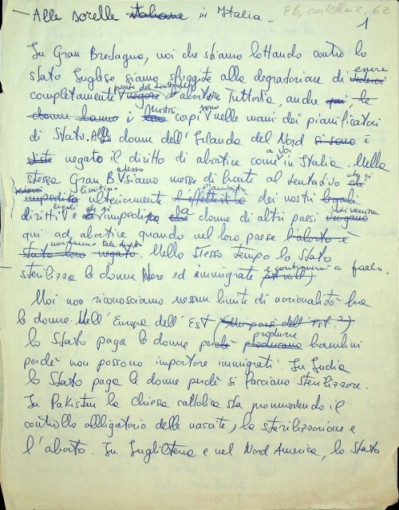 — Alle sorelle italiane in Italia —
1
In Gran Bretagna, noi che stiamo lottando contro lo
stato Inglese siamo sfuggite alla degradazione di essere
completamente negare l'abortire Tuttavia, anche qui le
donne hanno i nostri corpi sono nelle mani dei pianificatori
di Stato. Alle donne dell'Irlanda del Nord si sono è
stato negato il diritto di abortire come a voi in Italia. Nella
stessa Gran B. adesso siamo di fronte al tentativo di
ulteriormente dei nostri
diritti e di impedire a donne di altri paesi
qui ad abortire quando nel loro paese l'aborto è
stato loro negato. Nello stesso tempo lo Stato
sterilizza le donne Nere ed immigrate e continuerà a farlo.
Noi non riconosciamo nessun limite di nazionalità fra
le donne. Nell'Europa dell'Est
lo Stato paga le donne perchè producano produrre bambini
perchè non possono importare immigrati. In India
lo Stato paga le donne perchè si facciano sterilizzare.
In Pakistan la chiesa cattolica sta promuovendo il
controllo obbligatorio delle nascite, la sterilizzazione e
l'aborto. In Inghilterra e nel Nord America, lo Stato